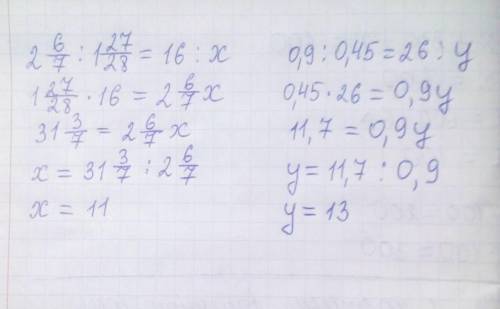 2 6/7 : 1 27/28 = 16 : x
1 27/28 · 16 = 2 6/7 x
31 3/7 = 2 6/7 x
x = 31 3/7 : 2 6/7
x = 11
0,9 : 0,45 = 26 : y
0,45 · 26 = 0,9y
11,7 = 0,9y
y = 11,7 : 0,9
y = 13